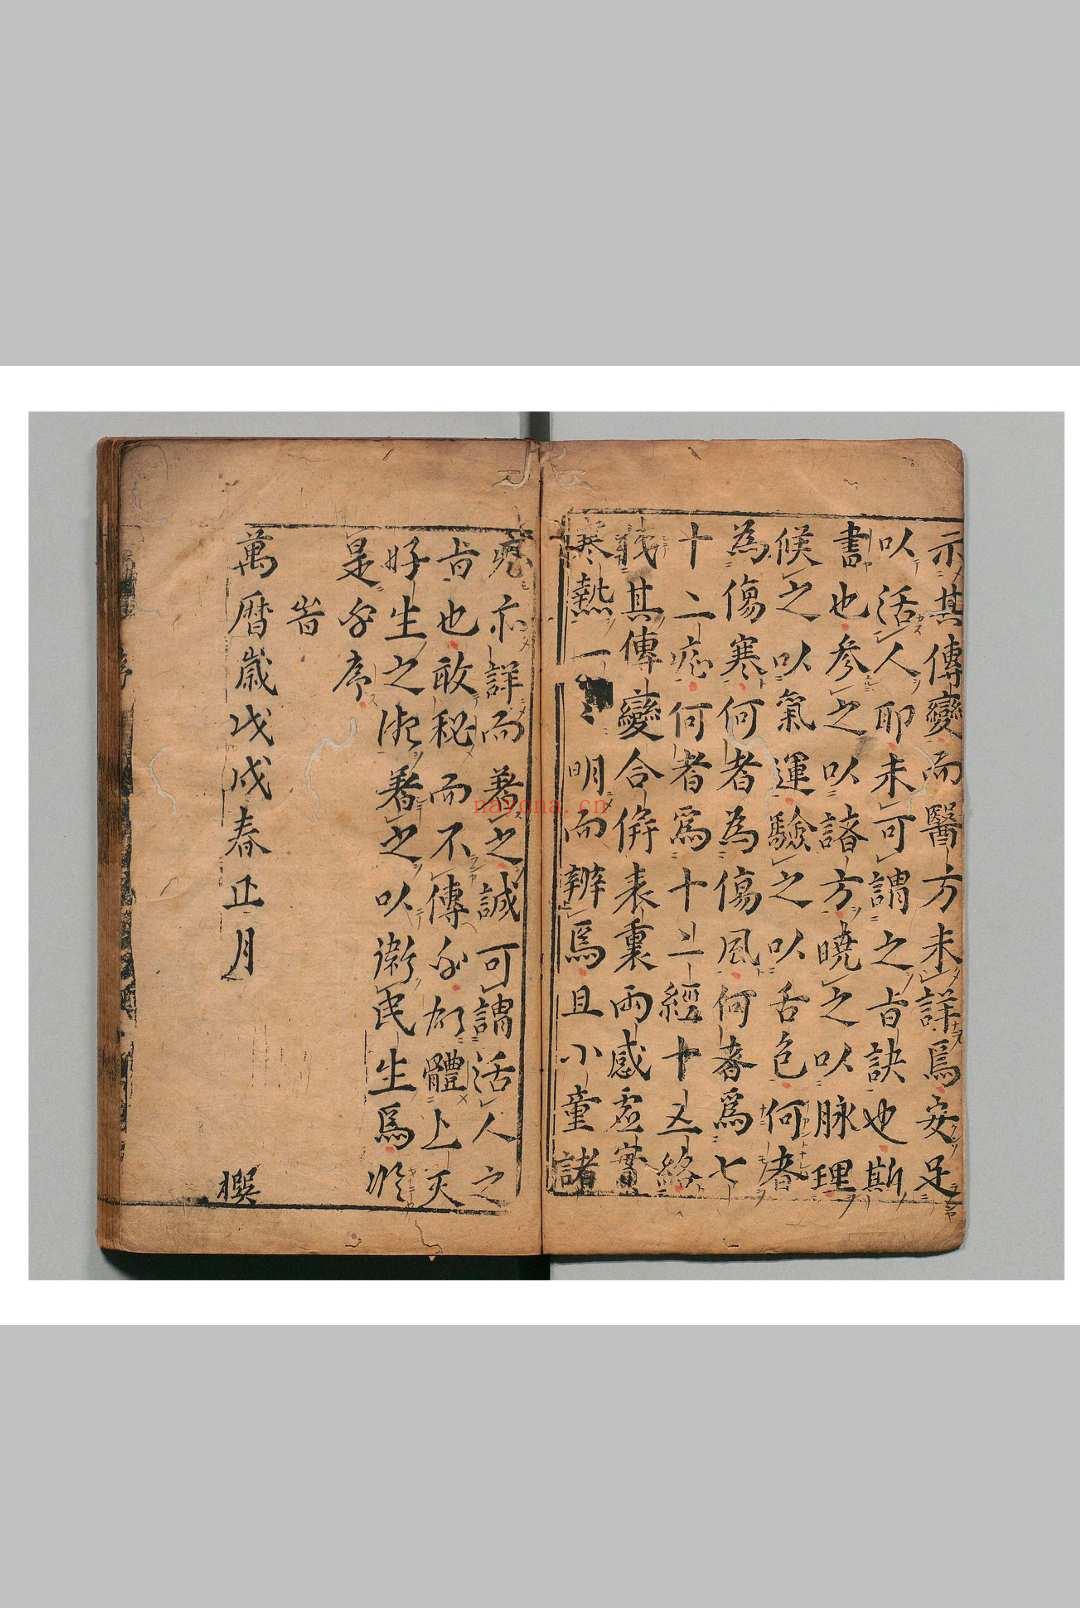 示其傳變而醫方未詳焉安足
以活人耶未可謂之旨訣也斯
書也參之以諸方曉之以脉理
候之以氣運驗之以舌色何者
為傷寒何者為傷風何者爲七
十二症何者爲十二經十五絡
其傳變合併表裏両感虛實
寒熱一〻明而辦焉且小童諸
亦詳而著之誠可謂活人之
旨也敢秘而不傳余体體上天
好生之德著之以衛民生焉於
是乎序
旹
萬曆歲戊戌春正月
撰
nayona.cn